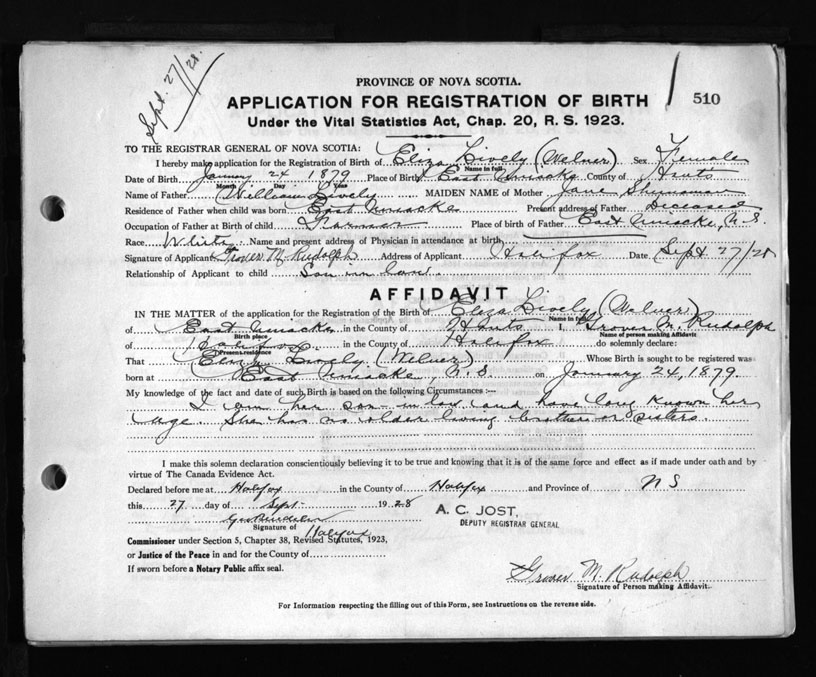 Sept. 27/28.
PROVINCE OF NOVA SCOTIA.
APPLICATION FOR REGISTRATION OF BIRTH
510
Under the Vital Statistics Act, Chap. 20, R. S. 1923.
TO THE REGISTRAR GENERAL OF NOVA SCOTIA:
I hereby make application for the Registration of Birth of Eliza Lively (Welner) Sex Female
Name in full
Date of Birth January 24 1879 Place of Birth East Uniacke County of Hants
Month Day Year
Name of Father William Lively MAIDEN NAME of Mother Jane
Residence of Father when child was born East Uniacke Present address of Father Deceased
Occupation of Father at Birth of child Farmer Place of birth of Father East Uniacke, N.S.
Race White Name and present address of Physician in attendance at birth
Signature of Applicant Grover M. Rudolph Address of Applicant Halifax Date Sept 27/28
Relationship of Applicant to child Son in law.
AFFIDAVIT
IN THE MATTER of the application for the Registration of the Birth of Eliza Lively (Welner)
Name in full
of East Uniacke in the County of Hants I, Grover M. Rudolph
Birth place Name of person making Affidavit
of Halifax in the County of Halifax do solemnly declare:
Present residence
That Eliza Lively (Welner) Whose Birth is sought to be registered was
born at East Uniacke, N.S. on January 24, 1879.
My knowledge of the fact and date of such Birth is based on the following Circumstances :—
I am her son-in-law and have long known her
age. She has no older living brothers or sisters.
I make this solemn declaration conscientiously believing it to be true and knowing that it is of the same force and effect as if made under oath and by
virtue of The Canada Evidence Act.
Declared before me at Halifax in the County of Halifax and Province of N S
this 27 day of Sept. 1928
A. C. JOST,
DEPUTY REGISTRAR GENERAL
Signature of
Halifax
Commissioner under Section 5, Chapter 38, Revised Statutes, 1923,
or Justice of the Peace in and for the County of
If sworn before a Notary Public affix seal.
Grover M. Rudolph
Signature of Person making Affidavit.
For Information respecting the filling out of this Form, see Instructions on the reverse side.